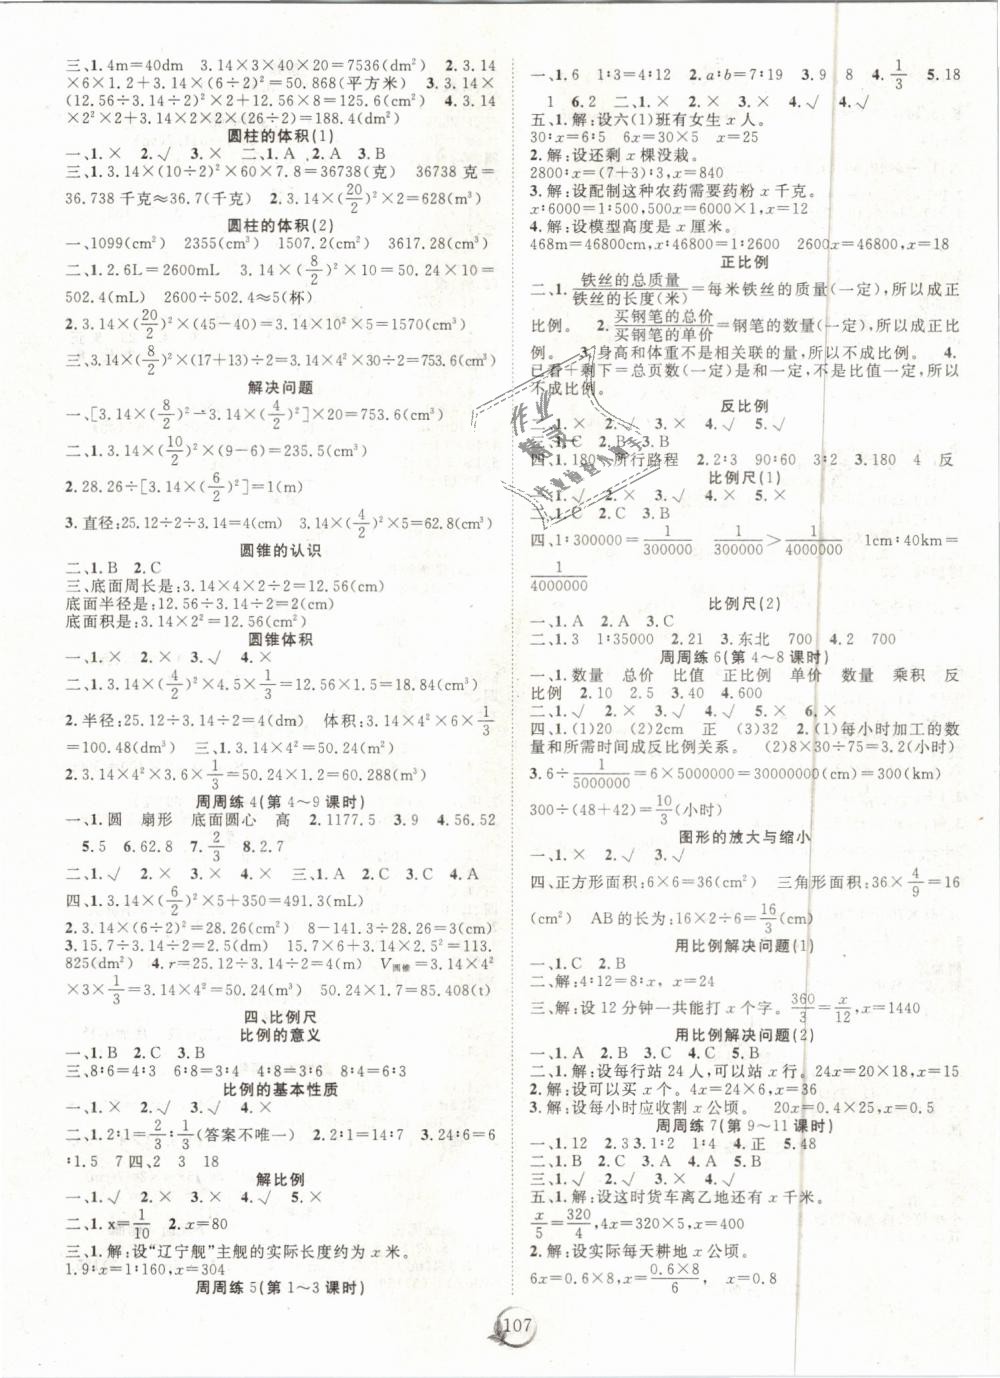 三、1.4m=40dm 3.14×3×40×20=7536(dm²) 2.3.14
×6×1.2+3.14×(6÷2)²=50.868(平方米) 3.3.14×
(12.56÷3.14÷2)²×2+12.56×8=125.6(cm²) 4.3.14
×2²×2+3.14×2×2×(26÷2)=188.4(cm²)
圆柱的体积(1)
一、1.× 2.√ 3.× 二、1.A 2.A 3.B
三、1.3.14×(10÷2)²×60×7.8=36738(克) 36738克=
36.738千克≈36.7(千克) 2.3.14×(20/2)²×2=628(m³)
圆柱的体积(2)
一、1099(cm²) 2355(cm³) 1507.2(cm²) 3617.28(cm³)
二、1.2.6L=2600mL 3.14×(8/2)²×10=50.24×10=
502.4(mL) 2600÷502.4≈5(杯)
2.3.14×(20/2)²×(45-40)=3.14×10²×5=1570(cm³)
三、3.14×(8/2)²×(17+13)÷2=3.14×4²×30÷2=753.6(cm³)
解决问题
一、[3.14×(8/2)²-3.14×(4/2)²]×20=753.6(cm³)
二、1.3.14×(10/2)²×(9-6)=235.5(cm³)
2.28.26÷[3.14×(6/2)²]=1(m)
3.直径:25.12÷2÷3.14=4(cm) 3.14×(4/2)²×5=62.8(cm³)
圆锥的认识
二、1.B 2.C
三、底面周长是:3.14×4×2÷2=12.56(cm)
底面半径是:12.56÷3.14÷2=2(cm)
底面积是:3.14×2²=12.56(cm²)
圆锥体积
一、1.× 2.× 3.√ 4.×
二、1.3.14×(4/2)²×4.5×1/3=12.56×1.5=18.84(cm³)
2.半径:25.12÷3.14÷2=4(dm) 体积:3.14×4²×6×1/3
=100.48(dm³) 三、1.3.14×4²=50.24(m²)
2.3.14×4²×3.6×1/3=50.24×1.2=60.288(m³)
周周练4(第4～9课时)
一、1.圆 扇形 底面圆心 高 2.1177.5 3.9 4.56.52
5.5 6.62.8 7.2/3 8.2.7
二、1.√ 2.× 3.× 4.× 三、1.A 2.C 3.C 4.A
四、1.3.14×(6/2)²×5+350=491.3(mL)
2.3.14×(6÷2)²=28.26(cm²) 8-141.3÷28.26=3(cm)
3.15.7÷3.14÷2=2.5(dm) 15.7×6+3.14×2.5²=113.
825(dm²) 4.r=25.12÷3.14÷2=4(m) V圆锥=3.14×4²
×3×1/3=3.14×4²=50.24(m³) 50.24×1.7=85.408(t)
四、比例尺
比例的意义
一、1.B 2.C 3.B
三、8∶6=4∶3 6∶8=3∶4 4∶8=3∶6 8∶4=6∶3
比例的基本性质
一、1.× 2.√ 3.√ 4.×
二、1.2∶1=2/3∶1/3(答案不唯一) 2.2∶1=14∶7 3.24∶6=6
∶1.5 7 四、2 3 18
解比例
一、1.√ 2.× 3.× 4.√ 5.×
二、1.x=1/10 2.x=80
三、1.解:设“辽宁舰”主舰的实际长度约为x米。
1.9∶x=1∶160,x=304
周周练5(第1～3课时)
一、1.6 1∶3=4∶12 2.a∶b=7∶19 3.9 8 4.1/3 5.18
1 6.2 二、1.× 2.× 3.× 4.√ 4.√
五、1.解:设六(1)班有女生x人。
30∶x=6∶5 6x=30×5 x=25
2.解:设还剩x棵没栽。
2800∶x=(7+3)∶3,x=840
3.解:设配制这种农药需要药粉x千克。
x∶6000=1∶500,500x=6000×1,x=12
4.解:设模型高度是x厘米。
468m=46800cm,x∶46800=1∶2600 2600x=46800,x=18
正比例
二、1.铁丝的总质量/铁丝的长度(米)=每米铁丝的质量(一定),所以成正
比例。 2.买钢笔的总价/买钢笔的单价=钢笔的数量(一定),所以成正比
例。 3.身高和体重不是相关联的量,所以不成比例。 4.
已看+剩下=总页数(一定)是和一定,不是比值一定,所以
不成比例。
反比例
一、1.× 2.× 3.× 4.√ 5.√
三、1.C 2.B 3.B
四、1.180 所行路程 2.2∶3 90∶60 3∶2 3.180 4 反
比例尺(1)
一、1.× 2.× 3.√ 4.× 5.×
二、1.C 2.C 3.B
四、1∶300000=1/300000 1/300000>1/4000000 1cm∶40km=
1/4000000
比例尺(2)
一、1.A 2.A 3.C
二、1.3 1∶35000 2.21 3.东北 700 4.2 700
周周练6(第4～8课时)
一、1.数量 总价 比值 正比例 单价 数量 乘积 反
比例 2.10 2.5 3.40 4.600
二、1.√ 2.× 3.√ 4.√ 5.× 6.×
四、1.(1)20 (2)2cm 正 (3)32 2.(1)每小时加工的数
量和所需时间成反比例关系。 (2)8×30÷75=3.2(小时)
3.6÷1/5000000=6×5000000=30000000(cm)=300(km)
300÷(48+42)=10/3(小时)
图形的放大与缩小
一、1.× 2.√ 3.√
四、正方形面积:6×6=36(cm²) 三角形面积:36×4/9=16
(cm²) AB的长为:16×2÷6=16/3(cm)
用比例解决问题(1)
一、1.C 2.B 3.A
二、解:4∶12=8∶x,x=24
三、解:设12分钟一共能打x个字。360/3=x/12,x=1440
用比例解决问题(2)
一、1.B 2.A 3.C 4.C 5.B
二、1.解:设每行站24人,可以站x行。24x=20×18,x=15
2.解:设可以买x个。4x=24×6,x=36
3.解:设每小时应收割x公顷。 20x=0.4×25,x=0.5
周周练7(第9～11课时)
一、1.12 2.3 3.1∶2 1∶4 4.正 5.48
二、1.× 2.√ 3.× 4.√ 三、1.C 2.B 3.A
五、1.解:设这时货车离乙地还有x千米。
x/5=320/4,4x=320×5,x=400
2.解:设实际每天耕地x公顷。
6x=0.6×8,x=0.6×8/6,x=0.8
107
作业
精灵